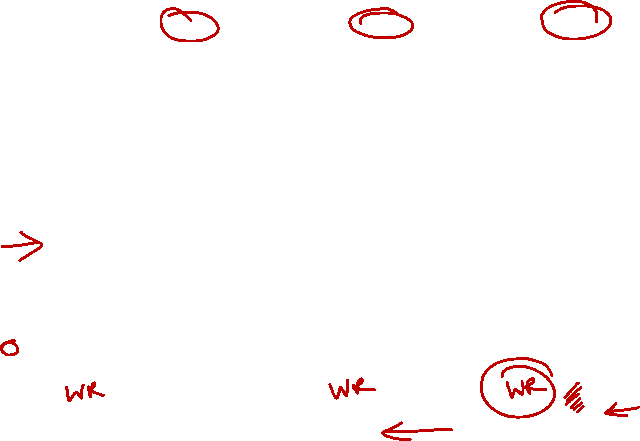 WR WR WR